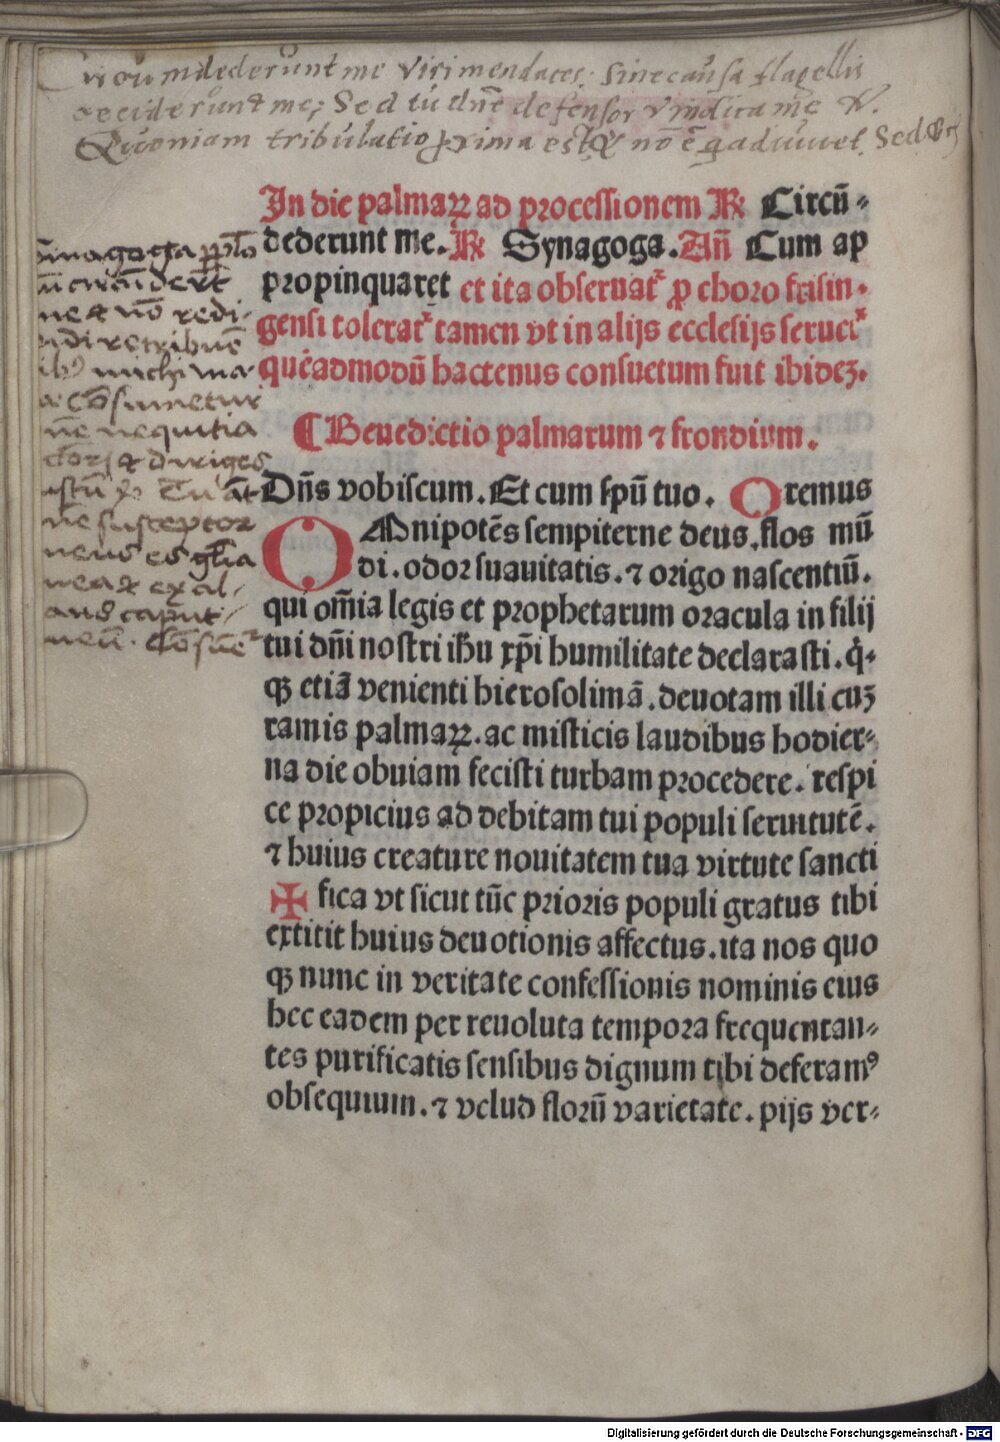 Circumdederunt me viri mendaces; sine causa flagellis
ceciderunt me; Sed tu dñe defensor vindica me V.
Quoniam tribulatio proxima est, & nō ē q adiuvet. Sed
In die palmaꝝ ad processionem ℟ Circū⸗
dederunt me. ℟ Synagoga. Añ Cum ap
propinquaret et ita obseruat᷒ ꝓ choro frisin⸗
gensi tolerat᷒ tamen vt in alijs ecclesijs seruet᷒
quēadmodū hactenus consuetum fuit ibidez.
¶ Benedictio palmarum ⁊ frondium.
Dñs vobiscum. Et cum spū tuo. Oremus
OMnipotēs sempiterne deus. flos mū
di. odor suauitatis. ⁊ origo nascentiū.
qui om̄ia legis et prophetarum oracula in filij
tui dñi nostri ih̄u xp̄i humilitate declarasti. q̇⸗
qꝫ etiā venienti hierosolimā. deuotam illi cuꝫ
ramis palmaꝝ. ac misticis laudibus hodier⸗
na die obuiam fecisti turbam procedere. respi
ce propicius ad debitam tui populi seruitutē.
⁊ huius creature nouitatem tua virtute sancti
✠ fica vt sicut tūc prioris populi gratus tibi
extitit huius deuotionis affectus. ita nos quo
qꝫ nunc in veritate confessionis nominis eius
hec eadem per reuoluta tempora frequentan⸗
tes purificatis sensibus dignum tibi deferamꝰ
obsequium. ⁊ velud florū varietate. pijs ver⸗
Sinagoga ppl̄o
circūdeder̄t
me & nō redi-
di retribuē
ibꝰ michi ma-
la Cōsumetur
nequitia
& diriges
iustū Tu āt
dñe susceptor
meus es gl̄ia
mea & exal-
tans caput
meū. Cōsue᷒
Digitalisierung gefördert durch die Deutsche Forschungsgemeinschaft - DFG